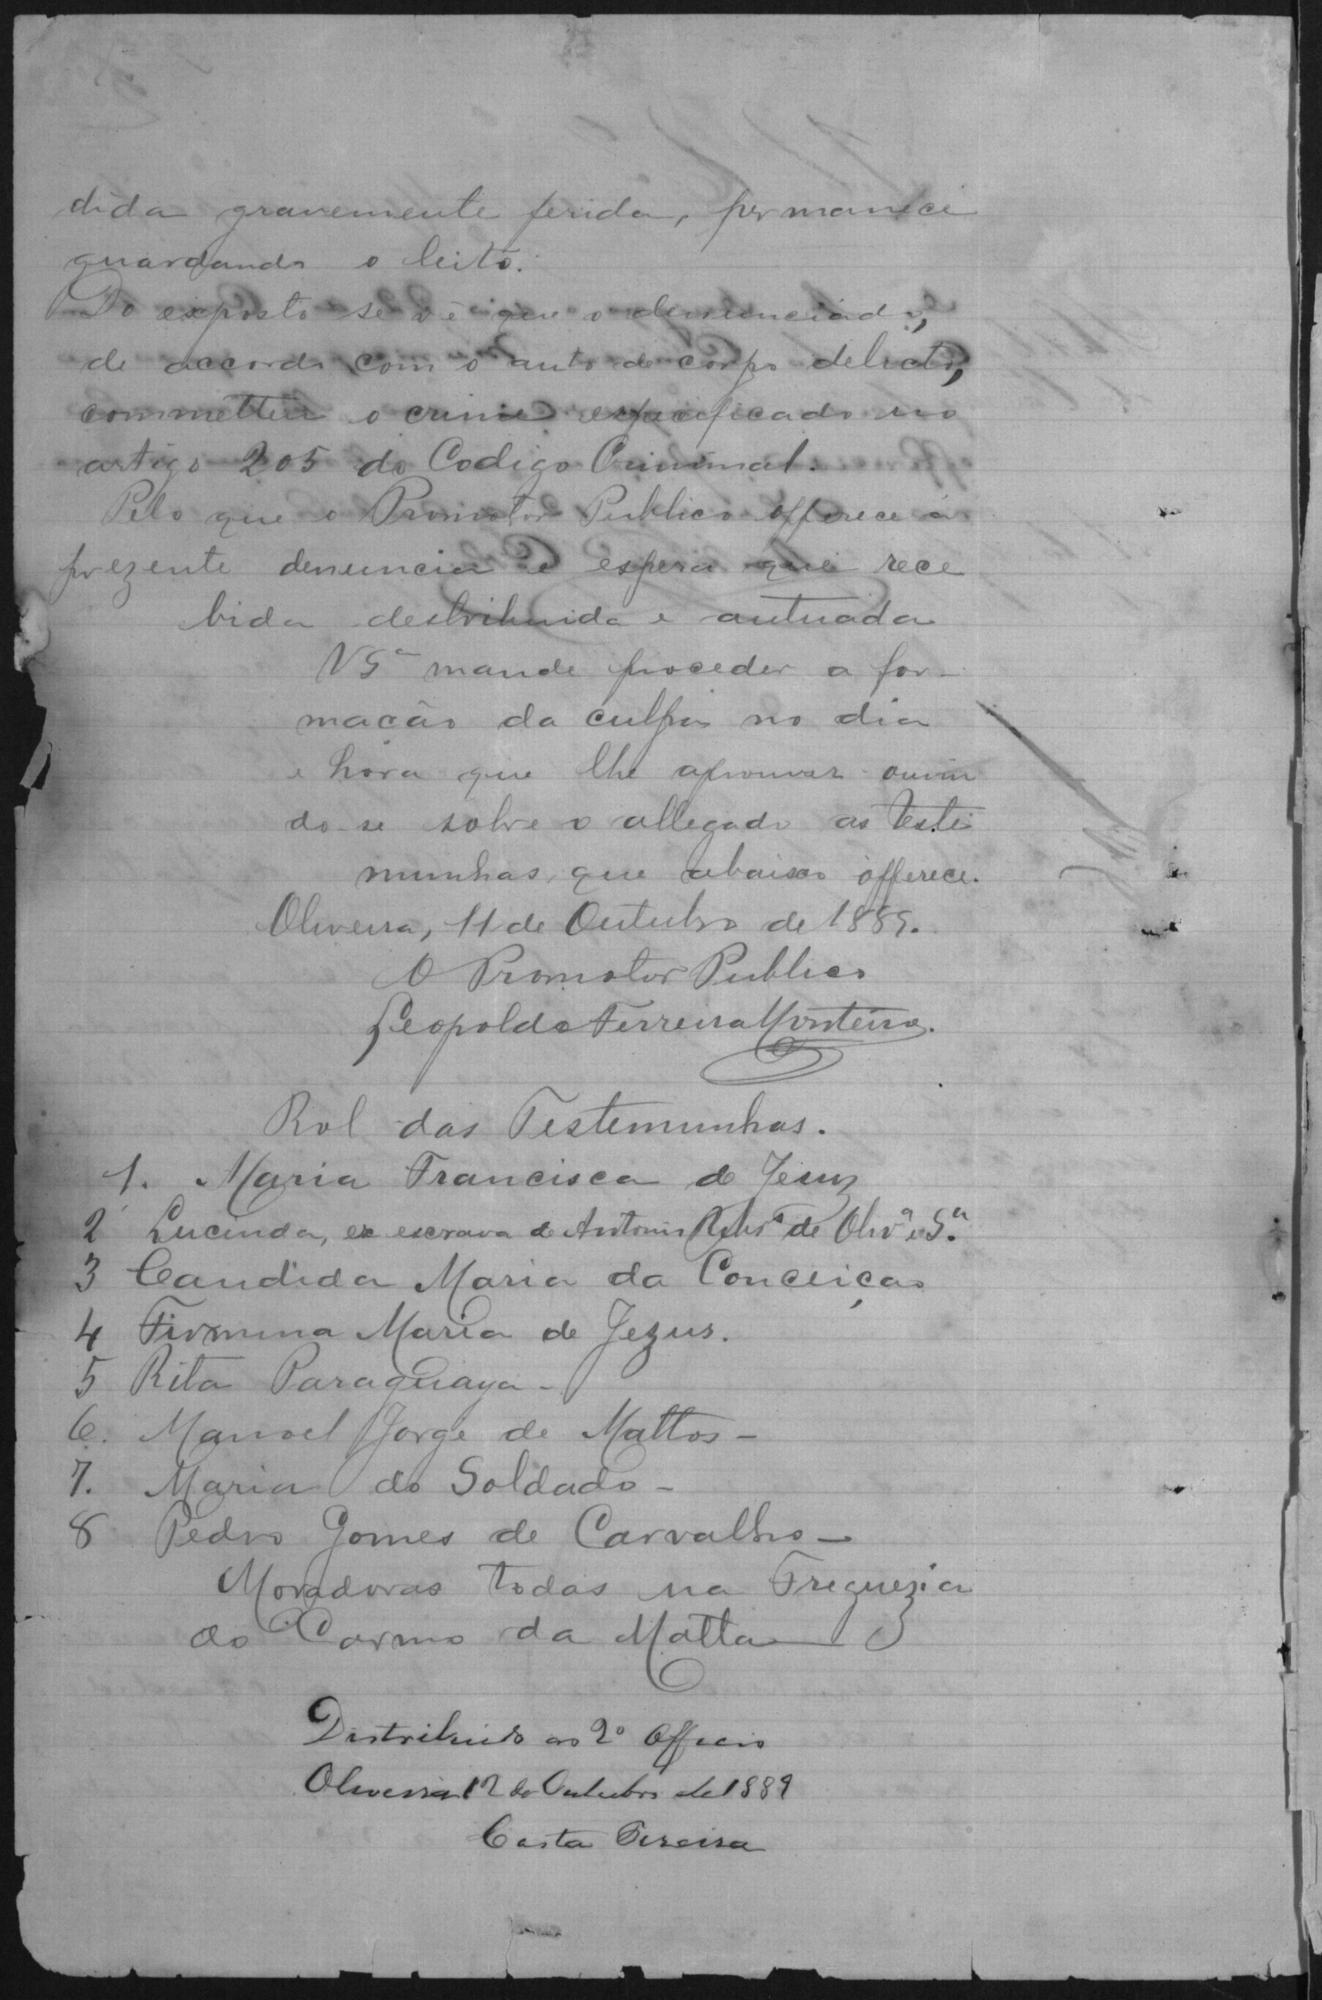 dida gravemente ferida, permanece
guardando o leito.
Do exposto se vê que o denunciado,
de accordo com o auto de corpo delicto,
commetteu o crime especificado no
artigo 205 do Codigo Criminal.
Pelo que o Promotor Publico offerece a
prezente denuncia e espera que rece
bida destribuida e autuada
VSª mande proceder a for-
mação da culpa no dia
e hora que lhe aprouver ouvin
do-se sobre o allegado as teste
munhas, que abaixo offerece.
Oliveira, 11 de Outubro de 1889.
O Promotor Publico
Leopoldo Ferreira Monteiro.
Rol das Testemunhas.
1. Maria Francisca de Jesuz
2 Lucinda, ex escrava de Antonio Ribrº de Olivª e Sª.
3 Candida Maria da Conceição
4 Firmina Maria de Jezus.
5 Rita Paraguaya -
6. Manoel Jorge de Mattos -
7. Maria do Soldado -
8 Pedro Gomes de Carvalho -
Moradoras todas na Freguezia
do Carmo da Matta
Distribuido ao 2º Officio
Oliveira 12 de Outubro de 1889
Costa Pereira